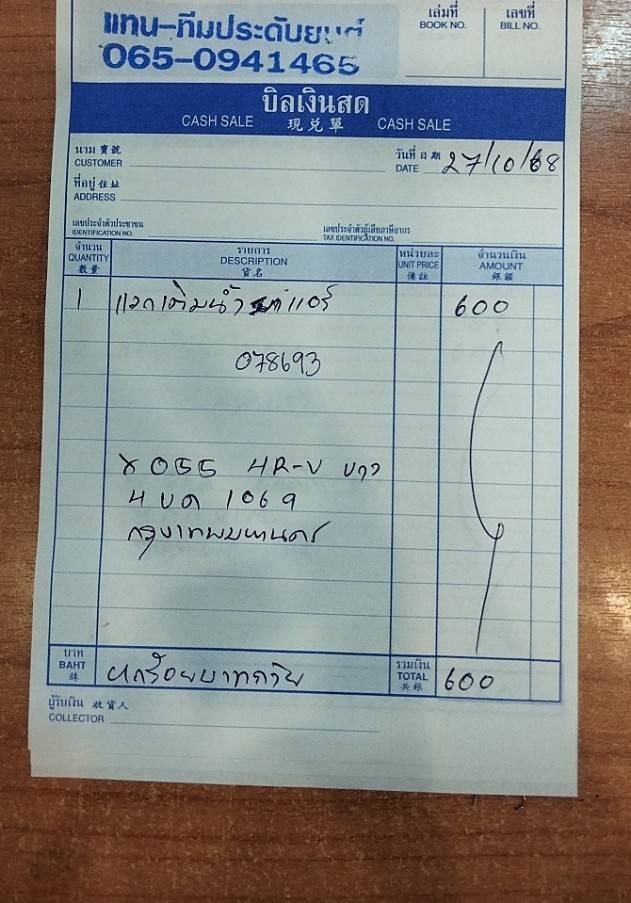 แทน-ทีมประดับยนต์
065-0941465
เล่มที่
BOOK NO.
เลขที่
BILL NO.
บิลเงินสด
CASH SALE 現兌單 CASH SALE
นาม 寶號
CUSTOMER
วันที่ 日期
DATE 27/10/68
ที่อยู่ 住址
ADDRESS
เลขประจำตัวประชาชน
IDENTIFICATION NO.
เลขประจำตัวผู้เสียภาษีอากร
TAX IDENTIFICATION NO.
จำนวน
QUANTITY
數量
รายการ
DESCRIPTION
貨名
หน่วยละ
UNIT PRICE
備註
จำนวนเงิน
AMOUNT
銀額
1 600
078693
HR-V ขาว
4 ขด 1069
กรุงเทพมหานคร
บาท
BAHT
銖
หกร้อยบาทถ้วน
รวมเงิน
TOTAL
共銀
600
ผู้รับเงิน 收貨人
COLLECTOR